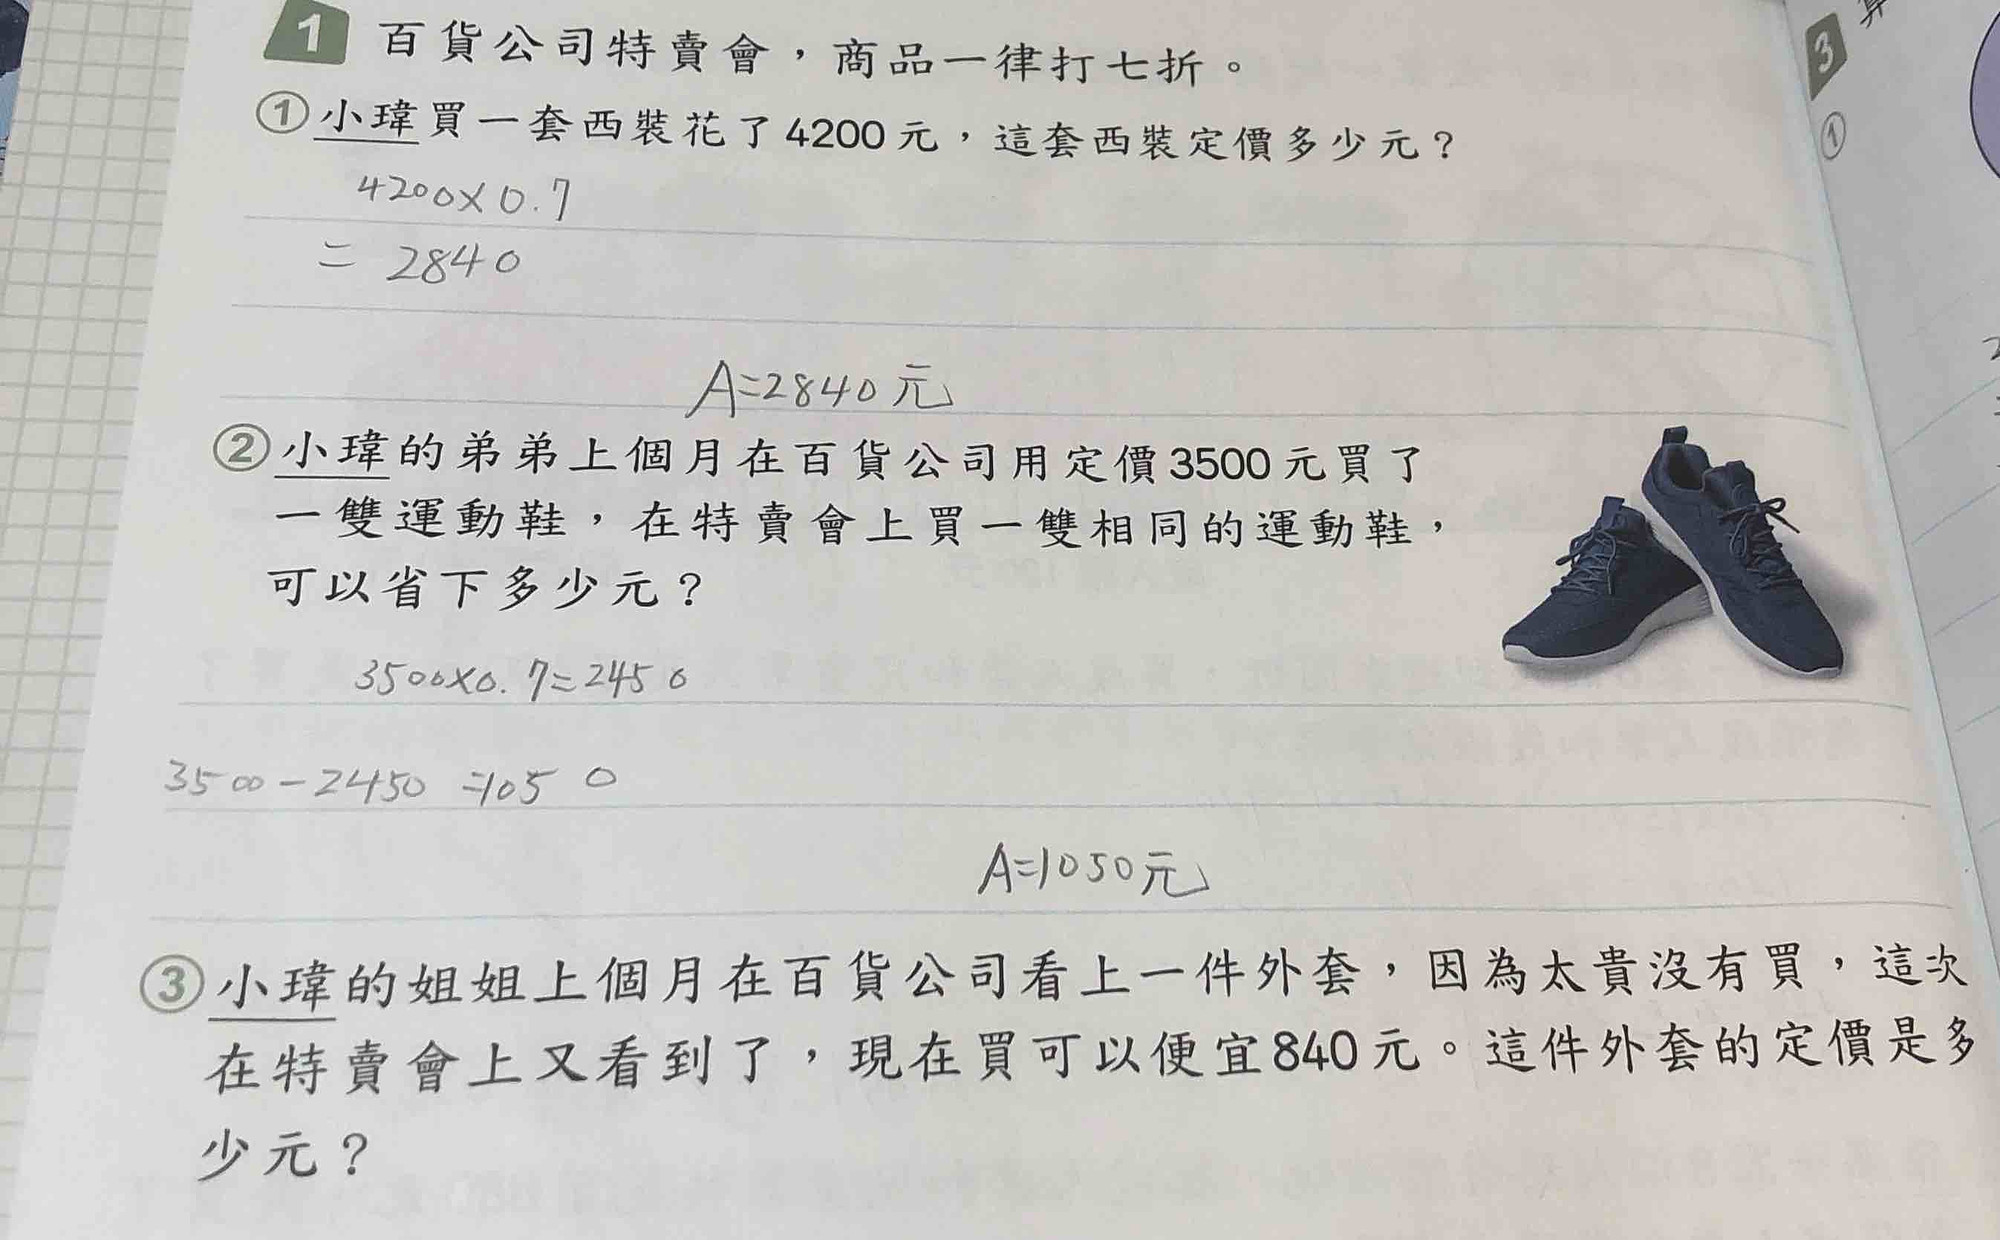 1 百貨公司特賣會，商品一律打七折。
①小瑋買一套西裝花了4200元，這套西裝定價多少元？
4200×0.7
= 2840
A=2840元
②小瑋的弟弟上個月在百貨公司用定價3500元買了
一雙運動鞋，在特賣會上買一雙相同的運動鞋，
可以省下多少元？
3500×0.7=2450
3500-2450=1050
A=1050元
③小瑋的姐姐上個月在百貨公司看上一件外套，因為太貴沒有買，這次
在特賣會上又看到了，現在買可以便宜840元。這件外套的定價是多
少元？
3
①